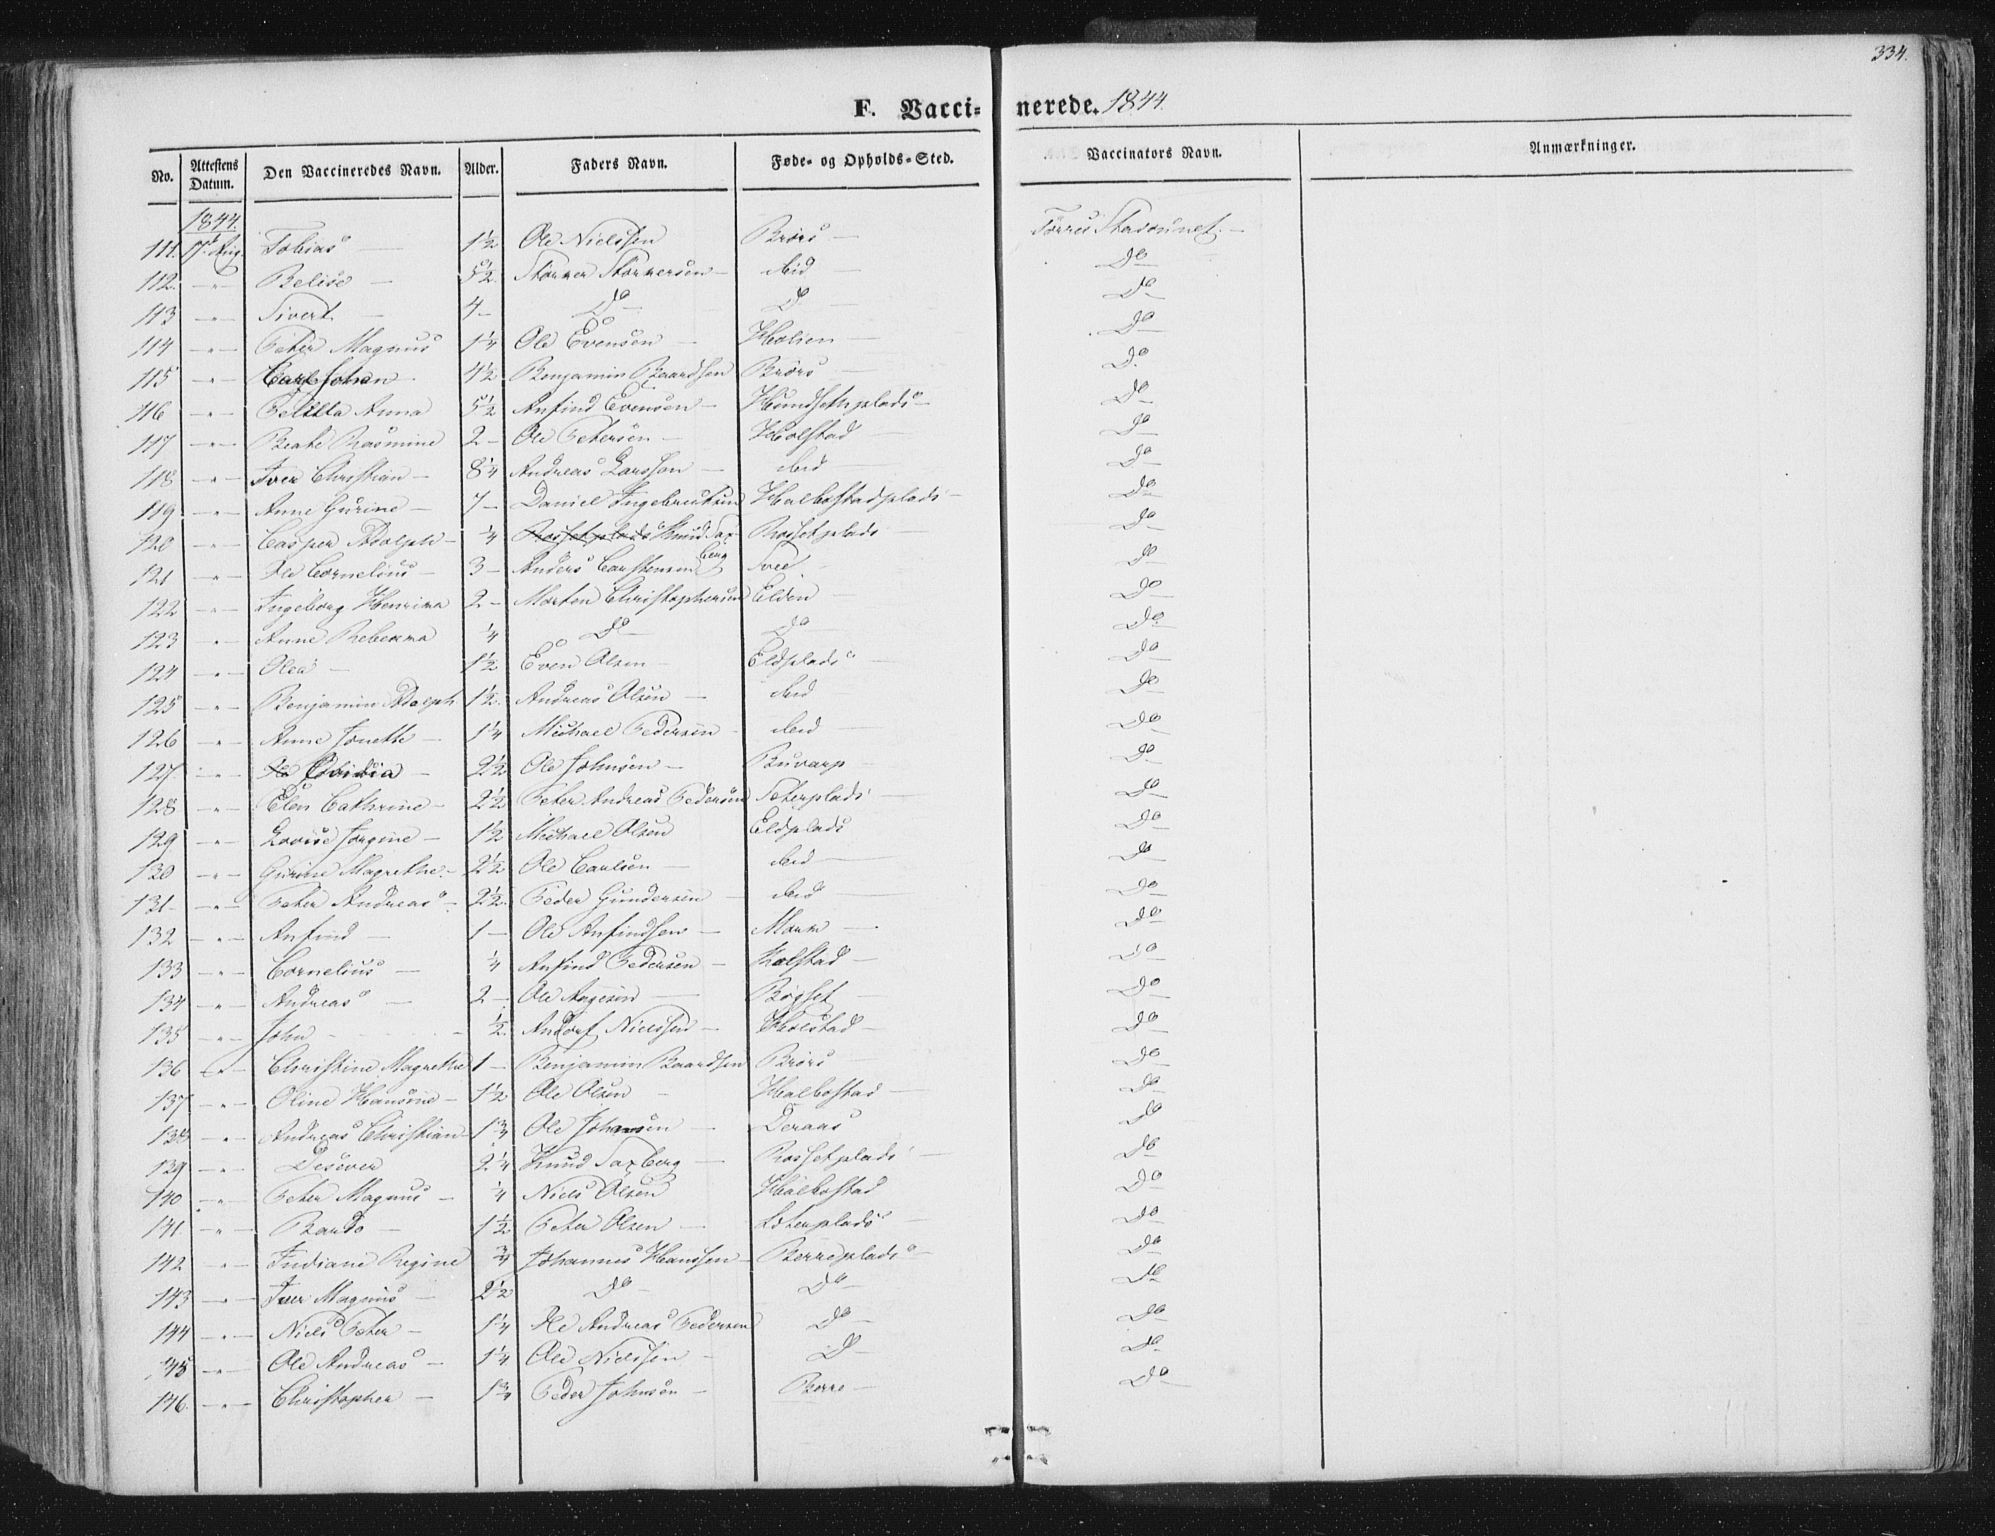 334.
F. Vaccinerede. 1844.
No. Attestens Datum. Den Vaccineredes Navn. Alder. Faders Navn. Føde- og Opholds-Sted. Vaccinators Navn. Anmærkninger.
1844.
111. 17d Aug. Tobias — 1½ Ole Nielssen Brørs —
112. -"- Belise — 5½ Størker Størkersen — ibid — Do
113 -"- Sivert — 4 — Do — Do — Do
114 -"- Peter Magnus 1¼ Ole Evensen — Holien — Do
115 -"- Carl Johan 4½ Benjamin Baardsen Brørs — Do
116 -"- Anna 5½ Anfind Evensen — Hundsethplads — Do
117 -"- Beate Rasmine 2 — Ole Petersen — Holstad — Do
118 -"- Iver Christian — 8¼ Andreas Larssen — ibid Do
119 -"- Anne Gurine — 7 — Daniel Ingebrigtsen Halbostadplads — Do
120 -"- Casper Adolph — ¼ Rossetplads Knud Saxberg Rossetplads — Do
121 -"- Ole Cornelius — 3 — Anders Carstensen Do
122 -"- Ingeborg Henrika 2 — Morten Christophersen Elden — Do
123 -"- Anne Rebekka ¼ Do — Do — Do
124 -"- Olea — 1½ Even Olsen — Eldplads — Do
125 -"- Benjamin Adolph 1½ Andreas Olsen — ibid — Do
126 -"- Anne Jonette — 1¼ Michael Pedersen — ibid — Do
127 -"- — 2½ Ole Johnsen — Buvarp — Do
128 -"- Elen Cathrine — 2½ Peter Andreas Pedersen Do
129 -"- Lovise Jørgine — 1½ Michael Olsen Eldplads Do
130 -"- Gurine Magrethe — 2½ Ole Carlsen — ibid — Do
131 -"- Peter Andreas — 2½ Peder Gundersen — ibid — Do
132 -"- Anfind — 1 — Ole Anfindsen — Mork — Do
133 -"- Cornelius — ¼ Anfind Pedersen — Holstad — Do
134 -"- Andreas — 2 — Ole Aagesen — Bøgset — Do
135 -"- John — ½ Andorf Nielssen — Holstad — Do
136 -"- Christine Magrethe 1 — Benjamin Baardsen Brørs — Do
137 -"- Oline Hansine — 1½ Ole Olsen — Halbostad — Do
138 -"- Andreas Christian — 1¾ Ole Johansen — Deraas — Do
139 -"- Peserver 2¼ Knud Saxberg — Rossetplads Do
140 -"- Peter Magnus — ¼ Niels Olsen Halbostad Do
141 -"- Bardo — 1½ Peter Olsen — Do
142 -"- Indiane Regine ¾ Johannes Hanssen — Berreplads — Do
143 -"- Iver Magnus — 2½ Do — Do — Do
144 -"- Niels Peter — 1¼ Ole Andreas Pedersen Do — Do
145 -"- Ole Andreas — 1¼ Ole Nielssen — Do Do
146. -"- Christopher — 1¾ Peder Johnsen — Berre — Do